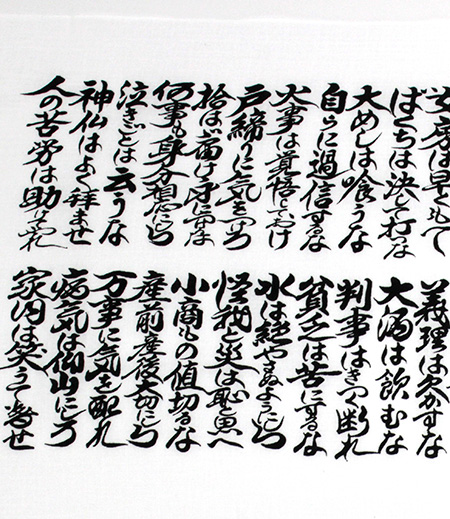 女房は早くもて
ばくちは決して打つな
大めしは喰うな
自らに過信するな
火事は覚悟しておけ
戸締りに気をつけろ
拾はば届け身につけるな
何事も身分相応にしろ
泣きごとは云うな
神仏はよく拝ませ
人の苦労は助けてやれ
義理は欠かすな
大酒は飲むな
判事はきつく断れ
貧乏は苦にするな
水は絶やさぬようにしろ
怪我と災は恥と思へ
小商もの値切るな
産前産後大切にしろ
万事に気を配れ
病気は仰山にしろ
家内は笑うて暮せ